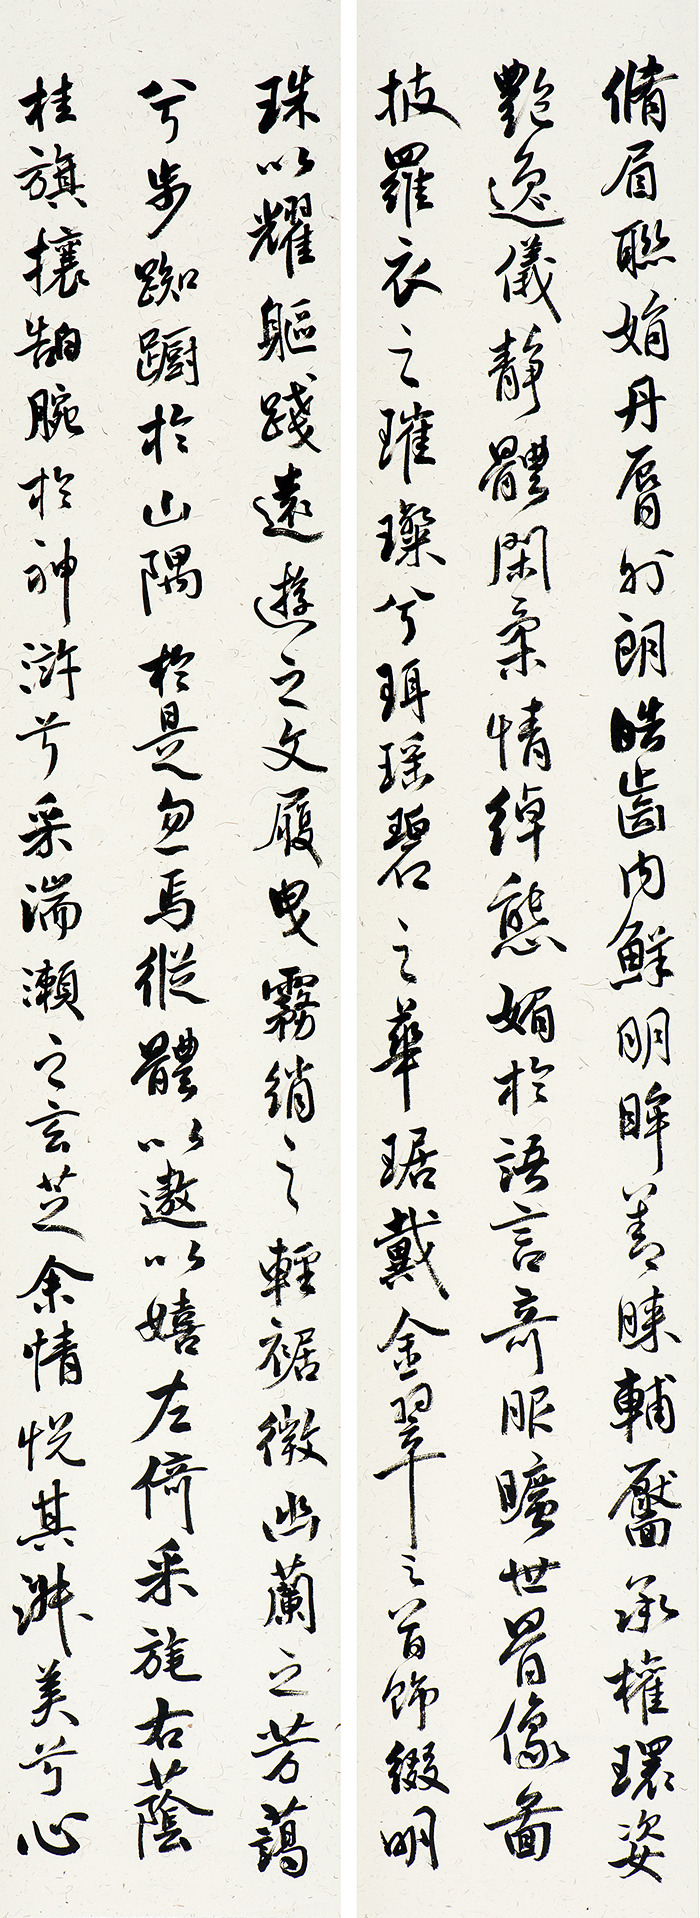 脩眉聯娟丹脣外朗皓齒内鮮明眸善睐輔靨承權瓌姿
艷逸儀静體閑柔情綽態媚於語言奇服曠世骨像應圖
披羅衣之璀璨兮珥瑶碧之華琚戴金翠之首飾綴明
珠以耀軀踐遠遊之文履曳霧綃之輕裾微幽蘭之芳藹
兮步踟蹰於山隅於是忽焉縱體以遨以嬉左倚采旄右蔭
桂旗攘皓腕於神滸兮采湍瀬之玄芝余情悦其淑美兮心